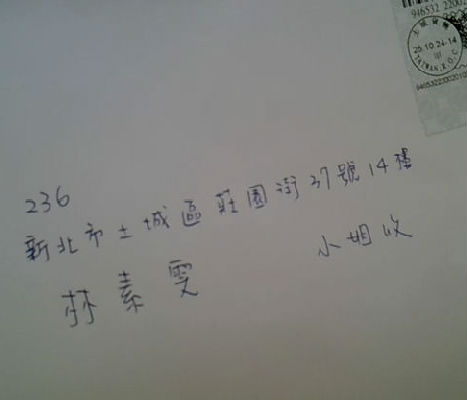 236
新北市土城區莊園街37號14樓
林素雯 小姐收
26.10.24-14
TAIWAN, R.O.C.